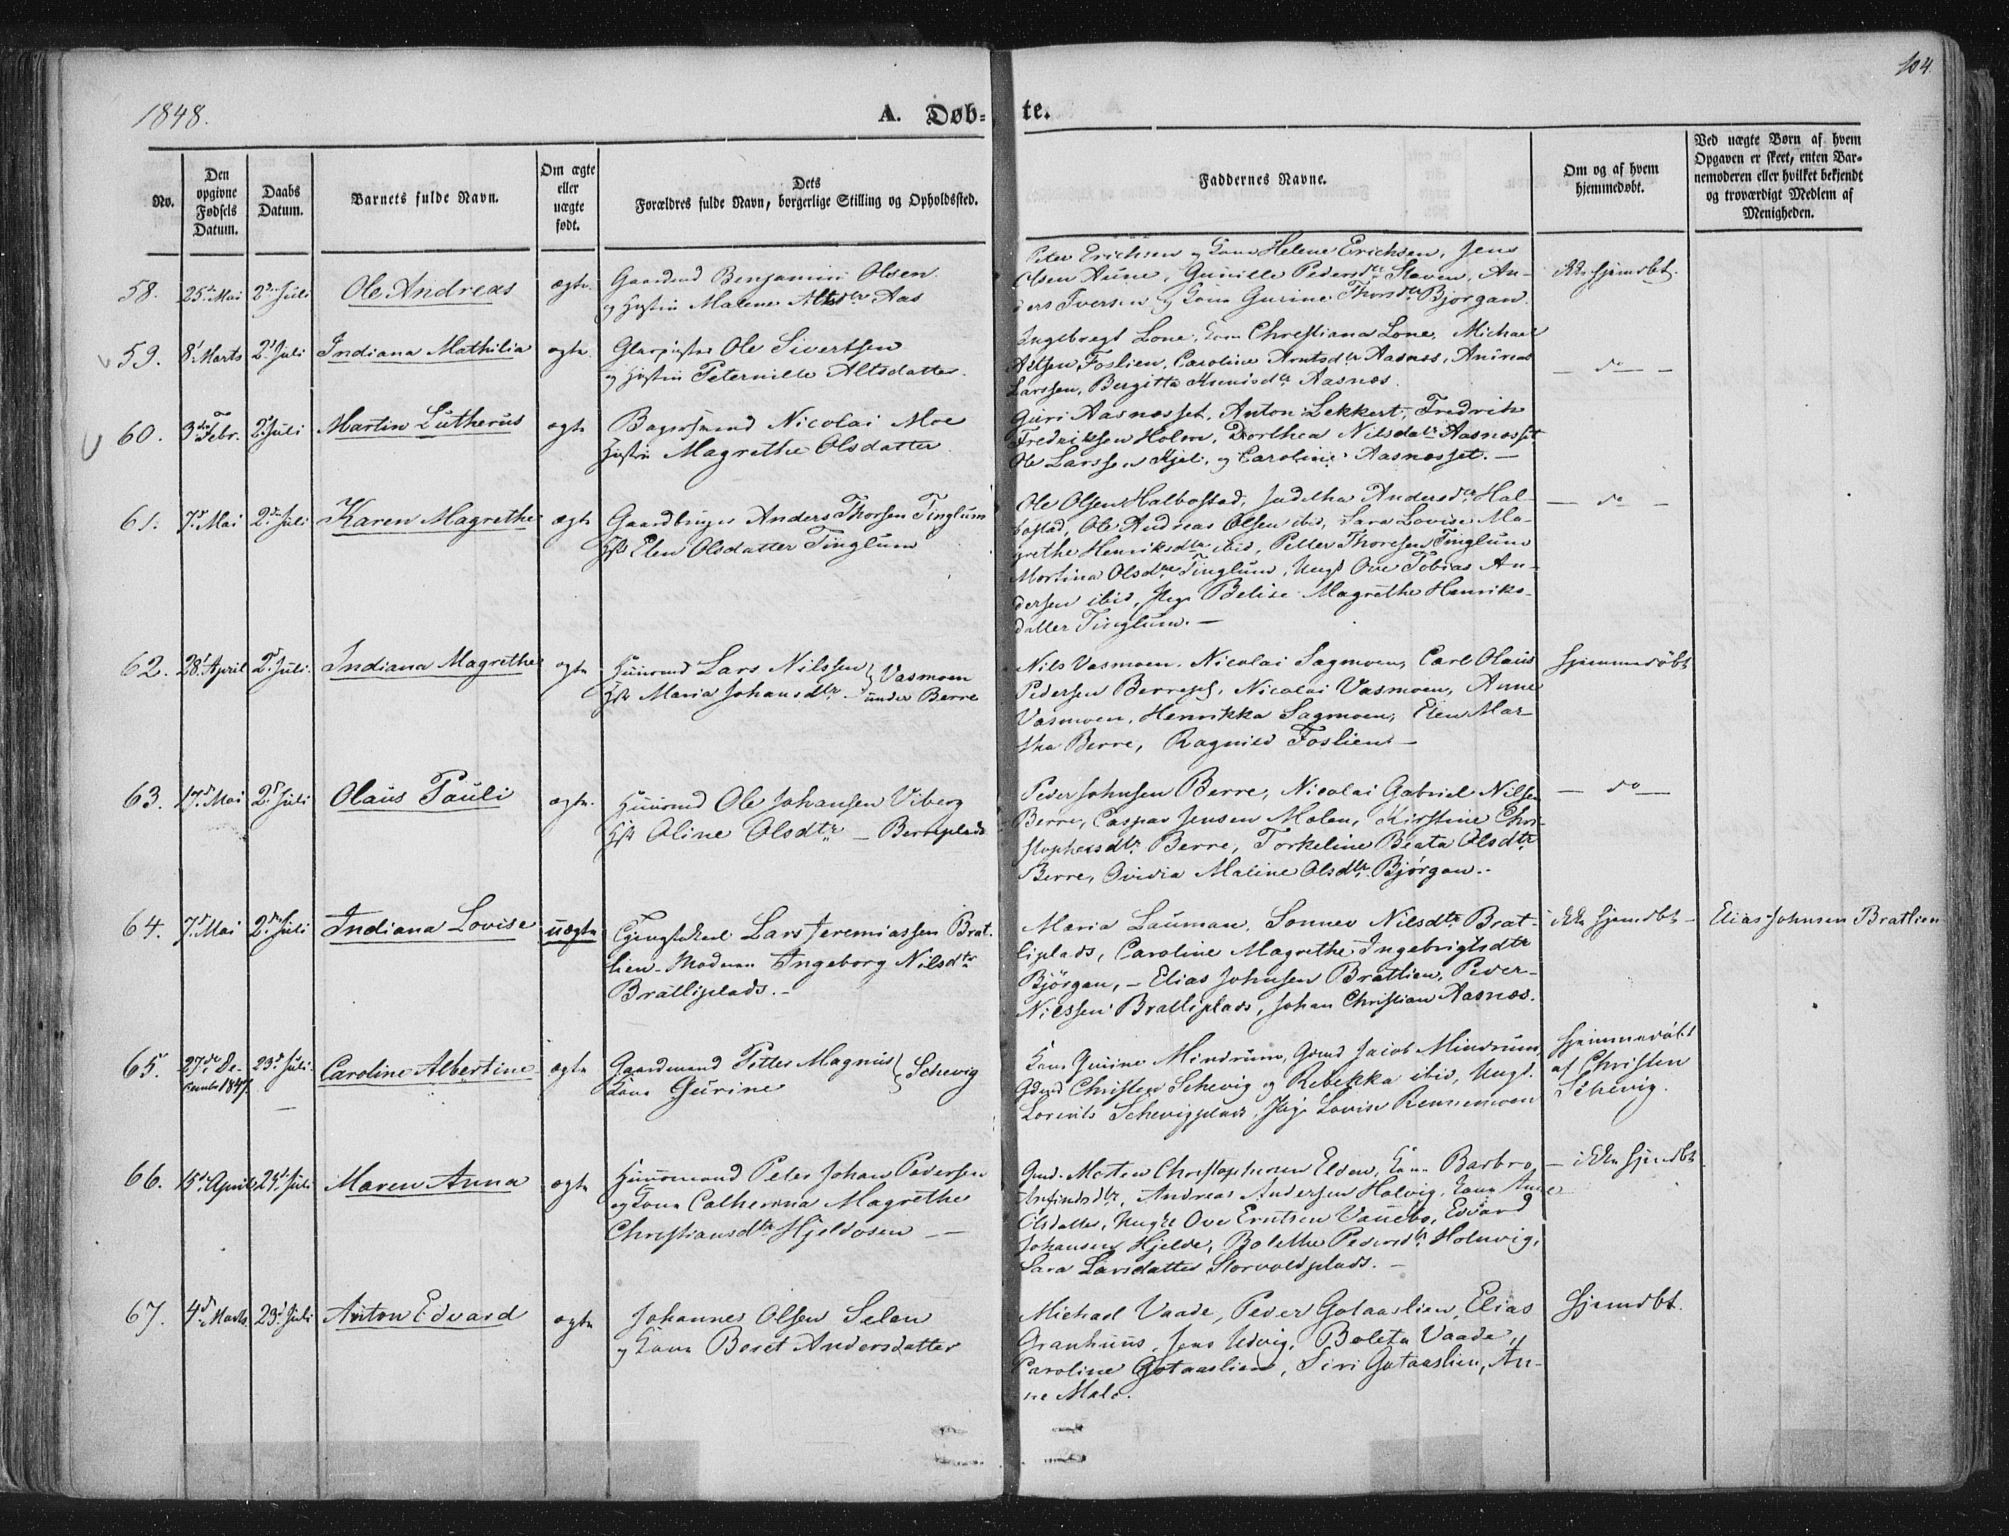 104.
1848.
A. Døb-
te.
No.
Den opgivne Fødsels Datum.
Daabs Datum.
Barnets fulde Navn.
Om ægte eller uægte født.
Dets Forældres fulde Navn, borgerlige Stilling og Opholdssted.
Faddernes Navne.
Om og af hvem hjemmedøbt.
Ved uægte Børn af hvem Opgaven er skeet, enten Barnemoderen eller hvilket bekjendt og troværdigt Medlem af Menigheden.
58. 25de Mai 2den Juli Ole Andreas ægte
Gaardmd Benjamin Olsen
og Hustru Malene Altsdtr Aas
Peter Erichsen og Kone Helene Erichsen, Jens
Olsen Aune, Gunille Pedersdtr Sloven, An-
ders Iversen og Kone Gurine Thorsdtr Bjørgan.
ikke hjemdbt.
59. 8. Marts 2. Juli Indiana Mathilia ægte
Ole Sivertsen
og Hustru Peternille Altsdatter.
Ingebregt Lone, Kone Christiana Lone, Michael
Altsen Foslien, Caroline Arntsdtr Aasnæs, Andreas
Larssen, Bergitta Aasnæs.
— do —
60. 3die Febr. 2. Juli Martin Lutherus ægte
Nicolai Moe
Hustru Magrethe Olsdatter
Guri Aasnæsset, Anton Lekkert, Fredrik
Fredriksen Holm, Dorthea Nilsdatr Aasnæsset
Ole Larssen Hjel, og Caroline Aasnæsset. —
61. 7. Mai 2den Juli Karen Magrethe ægte
Gaardbruger Anders Thorsen Tinglum
Hstr Elen Olsdatter Tinglum
Ole Olsen Halbostad, Juditha Andersdtr Hal-
bostad, Ole Andreas Olsen ibid, Sara Lovise Ma-
grethe Henriksdtr ibid, Petter Thoresen Tinglum
Martina Olsdtr Tinglum, Ungk Ove Tobias An-
dersen ibid, Pige Belise Magrethe Henriks-
datter Tinglum. —
— do —
62. 28. April 2. Juli. Indiana Magrethe ægte
Huusmd Lars Nilssen } Vasmoen
Hstr Maria Johansdtr. } under Berre
Nils Vasmoen. Nicolai Sagmoen, Carl Olaus
Pedersen Berrepl, Nicolai Vasmoen, Anne
Vasmoen, Henrikka Sagmoen, Elen Mar-
tha Berre, Ragnild Foslien. —
hjemmedøbt
63. 17de Mai 2. Juli Olaus Pauli ægte.
Huusmd Ole Johansen Viberg
Hstr Oline Olsdtr — Berreplads
Peder Johnsen Berre, Nicolai Gabriel Nilsen
Berre, Caspar Jensen Molen, Kirstine Chri-
stophersdtr Berre, Torkeline Beata Olsdtr
Berre, Ovidia Maline Olsdtr Bjørgan. -
— do —
64. 7. Mai 2den Juli Indiana Lovise uægte
Lars Jeremiassen Brat-
lien. Moderen Ingeborg Nilsdtr
Bratliplads. —
Maria Lauman, Sonnev Nilsdtr Brat-
liplads, Caroline Magrethe Ingebrigtsdtr
Bjørgan, — Elias Johnsen Bratlien, Peder
Nilssen Bratliplads, Johan Christian Aasnæs.
ikke hjemdbt — Elias Johnsen Bratlien
65. 27de De-
cember 1847. 23d Juli. Caroline Albertine ægte
Gaardmand Petter Magnus } Schevig
Kone Gurine
Kone Gurine Mindrum, Gdmd Jacob Mindrum,
Gdmd Christen Schevig og Rebekka ibid, Ungk.
Lorents Schevigplads, Pige Lovise Rennemoen
hjemmedøbt
af Christen
Schevig.
66. 15de April 23d Juli Maren Anna ægte
Huusmand Peter Johan Pedersen
og Kone Catherina Magrethe
Christiansdtr Hjeldosen —
Gmd. Morten Christophersen Elden, Kone Barbro
Arfindsdtr, Andreas Andersen Holvig, Kone Anne
Olsdatter, Ungkl Ove Erntsen Vauebo, Edvard
Johansen Hjelde, Bolethe Pedersdtr Holmvig,
Sara Larsdatter Storvoldplads. —
— ikke hjemdbt
67. 4d Marts 23d Juli Anton Edvard ægte
Johannes Olsen Selan
og Kone Beret Andersdatter
Michael Vaade, Peder Gotaaslien, Elias
Granhuus, Jens Udvig, Boleta Vaade,
Caroline Gotaaslien, Siri Gotaaslien, An-
ne Malo.
hjemdbt.